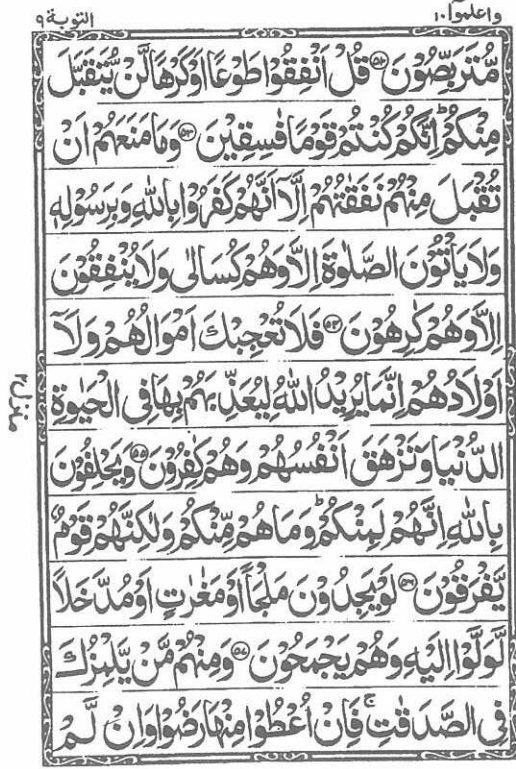 واعلموا ١٠
التوبة ٩
مُّتَرَبِّصُوْنَ ﴿۵۲﴾ قُلْ اَنْفِقُوْا طَوْعًا اَوْ كَرْهًا لَّنْ يُّتَقَبَّلَ
مِنْكُمْ ؕ اِنَّكُمْ كُنْتُمْ قَوْمًا فٰسِقِيْنَ ﴿۵۳﴾ وَمَا مَنَعَهُمْ اَنْ
تُقْبَلَ مِنْهُمْ نَفَقٰتُهُمْ اِلَّاۤ اَنَّهُمْ كَفَرُوْا بِاللّٰهِ وَبِرَسُوْلِهٖ
وَلَا يَاْتُوْنَ الصَّلٰوةَ اِلَّا وَهُمْ كُسَالٰى وَلَا يُنْفِقُوْنَ
اِلَّا وَهُمْ كٰرِهُوْنَ ﴿۵۴﴾ فَلَا تُعْجِبْكَ اَمْوَالُهُمْ وَلَاۤ
اَوْلَادُهُمْ اِنَّمَا يُرِيْدُ اللّٰهُ لِيُعَذِّبَهُمْ بِهَا فِى الْحَيٰوةِ
الدُّنْيَا وَتَزْهَقَ اَنْفُسُهُمْ وَهُمْ كٰفِرُوْنَ ﴿۵۵﴾ وَيَحْلِفُوْنَ
بِاللّٰهِ اِنَّهُمْ لَمِنْكُمْ ؕ وَمَا هُمْ مِّنْكُمْ وَلٰكِنَّهُمْ قَوْمٌ
يَّفْرَقُوْنَ ﴿۵۶﴾ لَوْ يَجِدُوْنَ مَلْجَاً اَوْ مَغٰرٰتٍ اَوْ مُدَّخَلًا
لَّوَلَّوْا اِلَيْهِ وَهُمْ يَجْمَحُوْنَ ﴿۵۷﴾ وَمِنْهُمْ مَّنْ يَّلْمِزُكَ
فِى الصَّدَقٰتِ ۚ فَاِنْ اُعْطُوْا مِنْهَا رَضُوْا وَاِنْ لَّمْ
منزل ٢